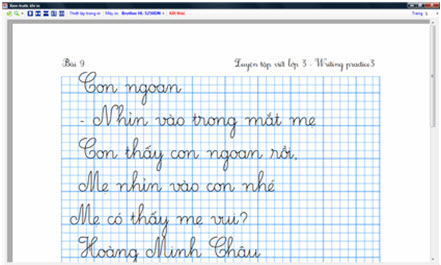 Xem trước khi in
Thiết lập trang in Máy in: Brother HL-5250DN Kết thúc Trang 1
Bài 9 Luyện tập viết lớp 3 - Writing practice3
Con ngoan
- Nhìn vào trong mắt mẹ
Con thấy con ngoan rồi,
Mẹ nhìn vào con nhé
Mẹ có thấy mẹ vui?
Hoàng Minh Châu